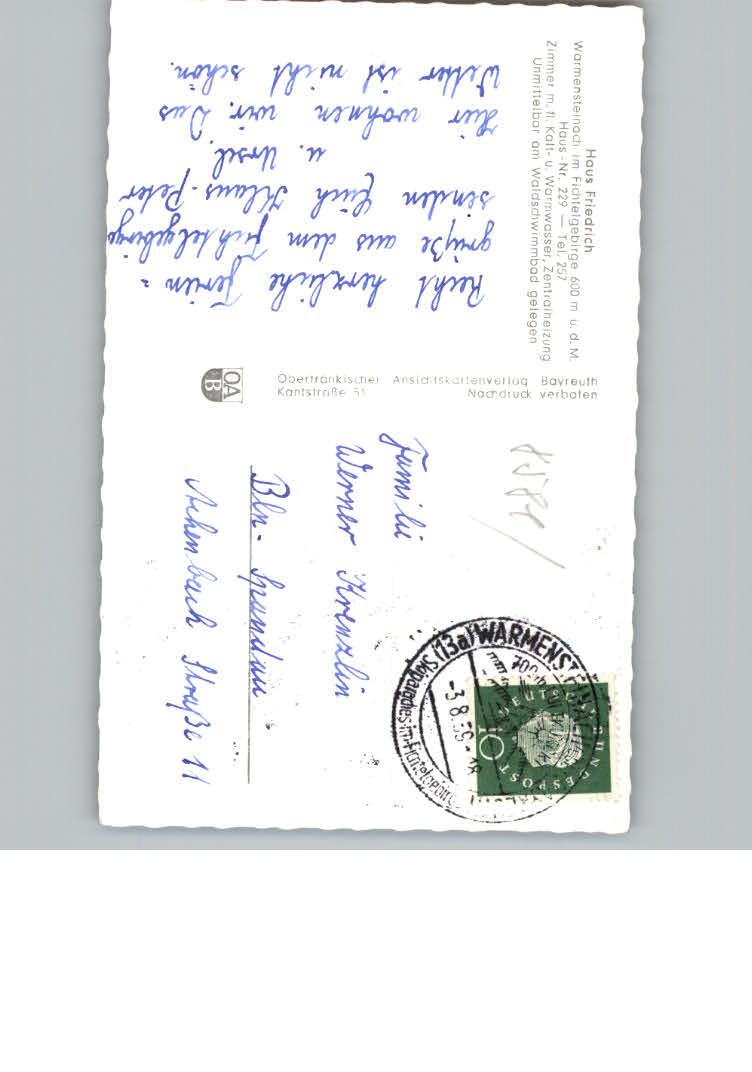 Haus Friedrich
Warmensteinach im Fichtelgebirge 600 m ü. d. M.
Haus-Nr. 229 — Tel. 257
Zimmer m. fl. Kalt- u. Warmwasser, Zentralheizung
Unmittelbar am Waldschwimmbad gelegen
Recht herzliche Ferien=
grüße aus dem Fichtelgebirge
senden Euch Klaus-Peter
u. Ursel.
Hier wohnen wir. Das
Wetter ist nicht schön.
Oberfränkischer Ansichtskartenverlag Bayreuth
Kantstraße 51 Nachdruck verboten
OA
B
8581
Familie
Werner Krenzlin
Bln- Spandau
Achenbach Straße 11
(13a) WARMENSTEINACH
700
Skiparadies im Fichtelgebirge
-3.8.59.-18
DEUTSCHE BUNDESPOST
10